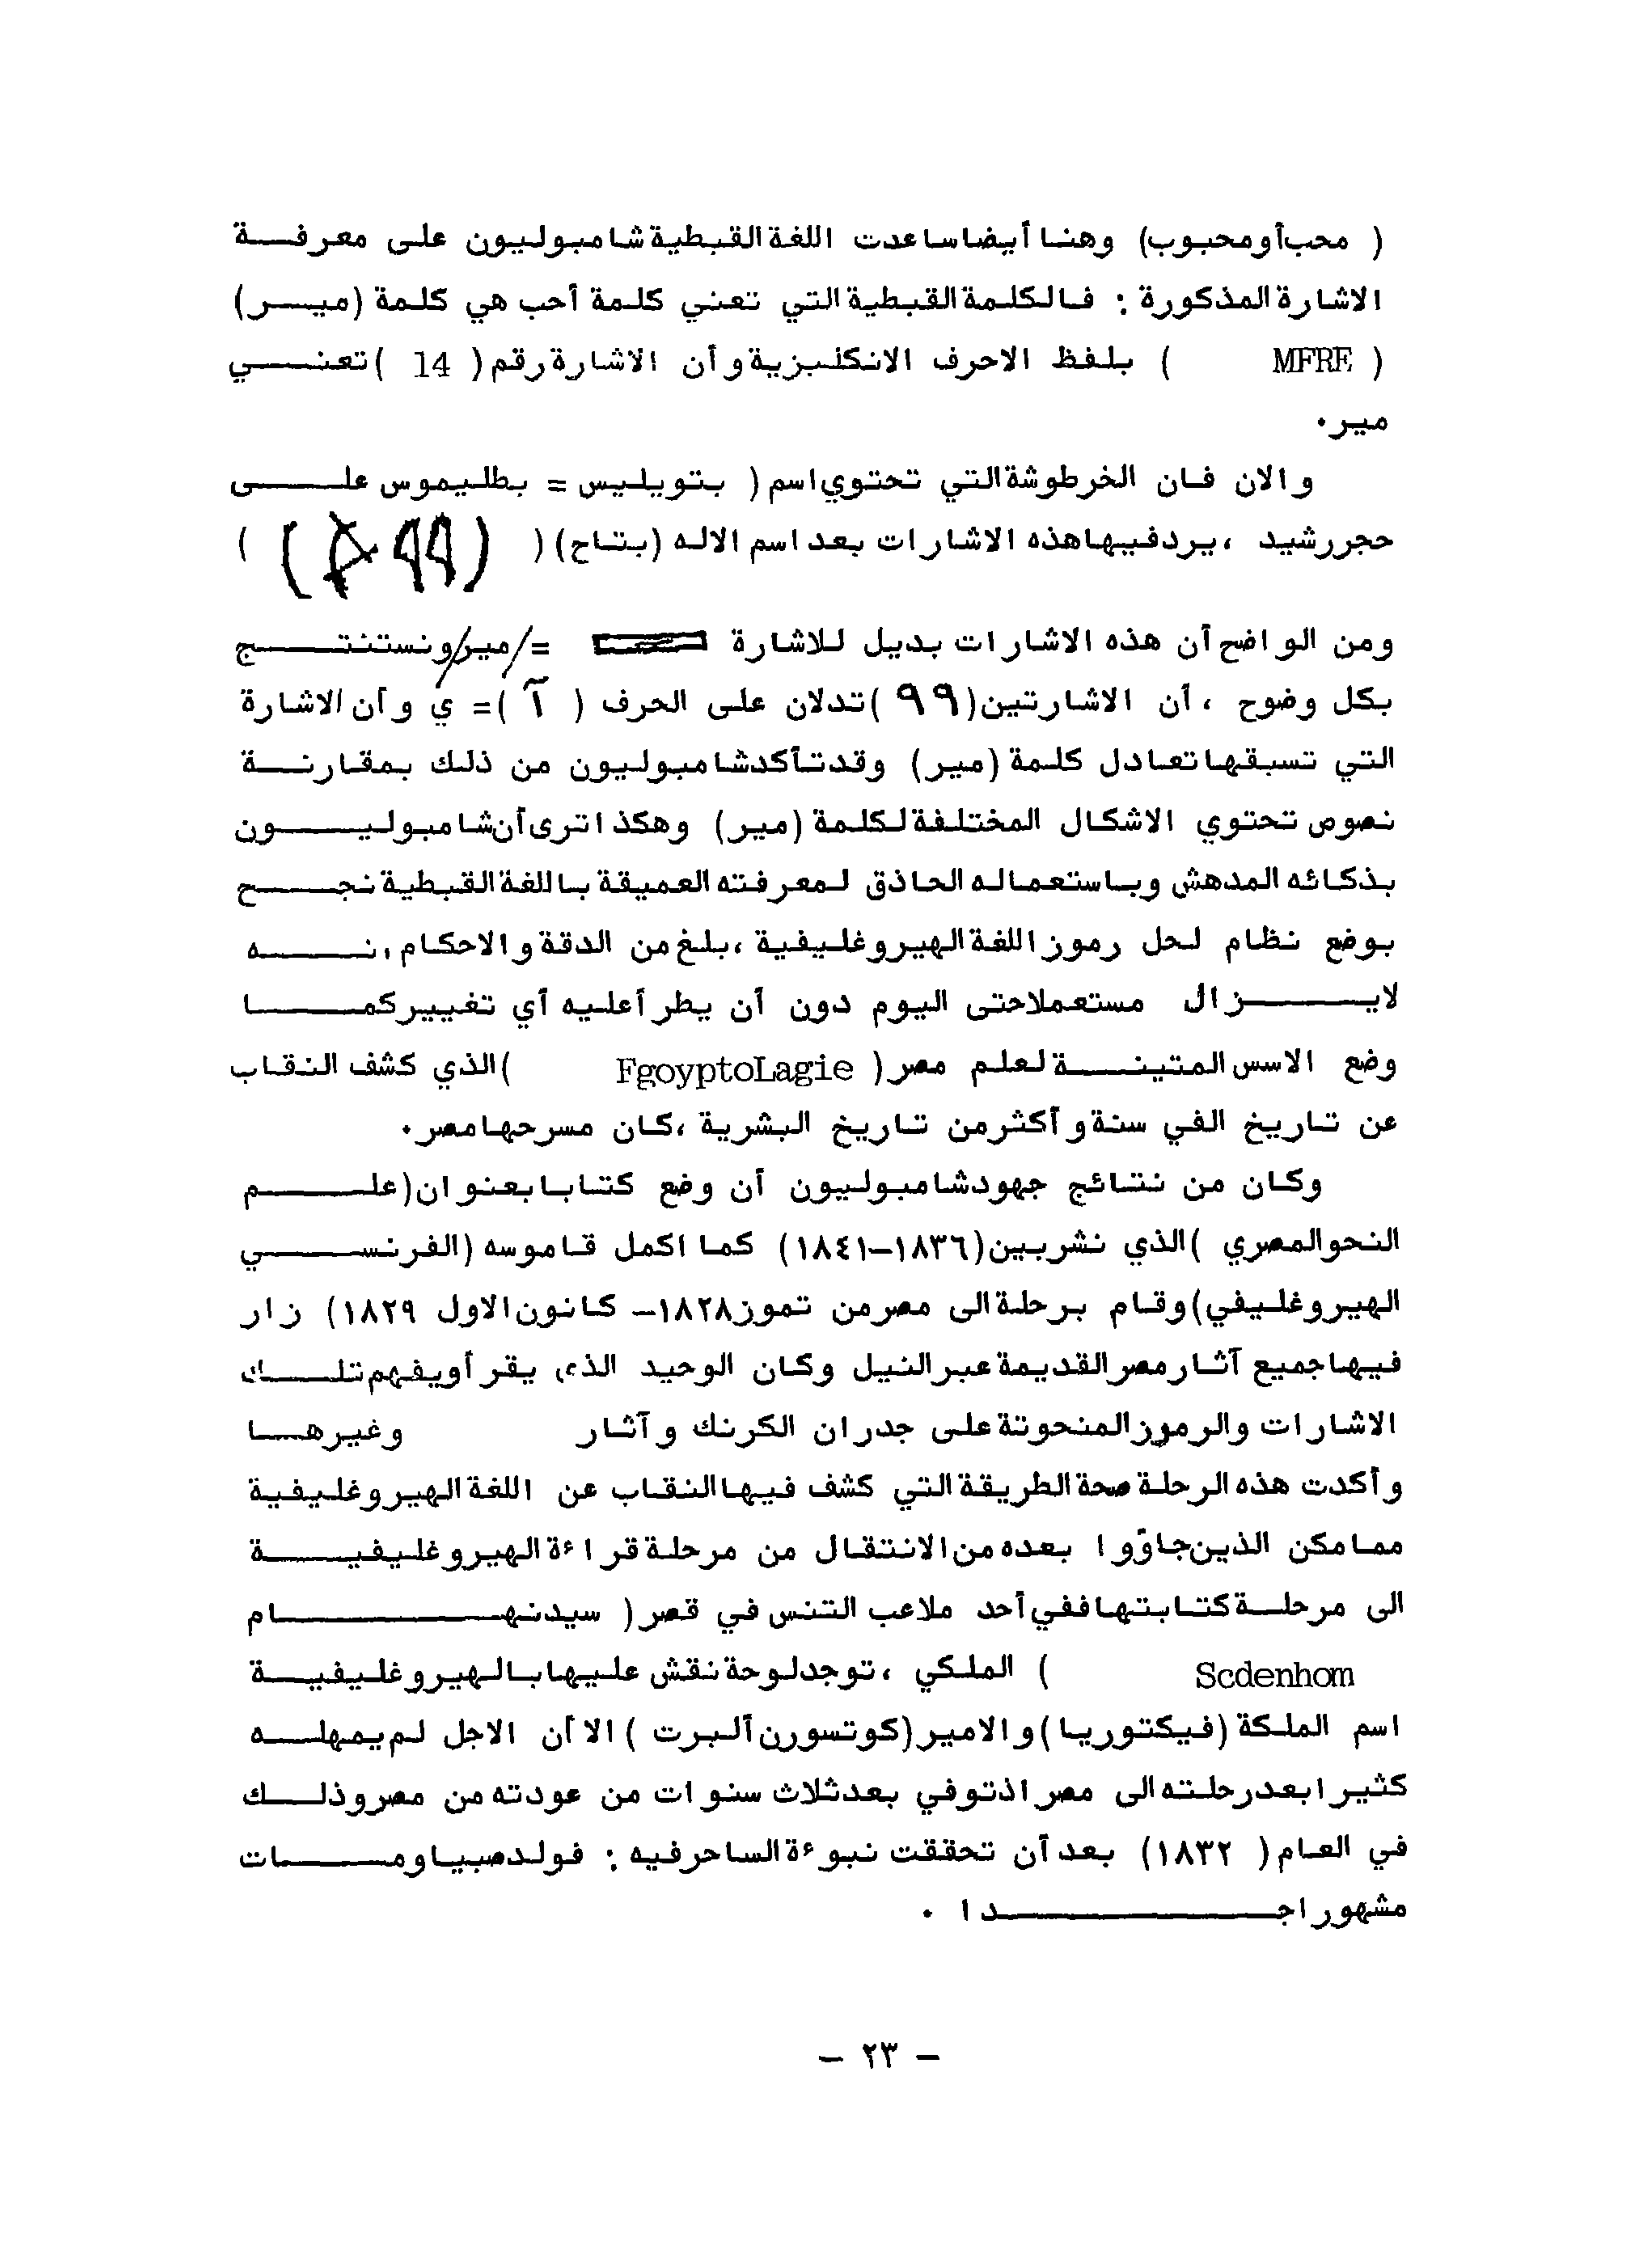 ( محب أو محبوب) وهنا أيضا ساعدت اللغة القبطية شامبوليون على معرفة
الاشارة المذكورة : فالكلمة القبطية التي تعني كلمة أحب هي كلمة (مير)
( MFRE ) بلفظ الاحرف الانكليزية وأن الاشارة رقم ( 14 ) تعني
مير.
والان فان الخرطوشة التي تحتوي اسم ( بتويليس = بطليموس على
حجر رشيد ، يرد فيها هذه الاشارات بعد اسم الاله (بتاح) ( )
ومن الواضح أن هذه الاشارات بديل للاشارة =/مير/ ونستنتج
بكل وضوح ، أن الاشارتين (٩٩) تدلان على الحرف ( آ )= ي وأن الاشارة
التي تسبقها تعادل كلمة (مير) وقد تأكد شامبوليون من ذلك بمقارنة
نصوص تحتوي الاشكال المختلفة لكلمة (مير) وهكذا ترى أن شامبوليون
بذكائه المدهش وباستعماله الحاذق لمعرفته العميقة باللغة القبطية نجح
بوضع نظام لحل رموز اللغة الهيروغليفية ، بلغ من الدقة والاحكام ،نه
لايزال مستعملا حتى اليوم دون أن يطرأ عليه أي تغيير كما
وضع الاسس المتينة لعلم مصر ( FgoyptoLagie ) الذي كشف النقاب
عن تاريخ الفي سنة وأكثر من تاريخ البشرية ، كان مسرحها مصر.
وكان من نتائج جهود شامبوليون أن وضع كتابا بعنوان (علم
النحو المصري ) الذي نشر بين (١٨٣٦–١٨٤١) كما اكمل قاموسه (الفرنسي
الهيروغليفي) وقام برحلة الى مصر من تموز ١٨٢٨– كانون الاول ١٨٢٩) زار
فيها جميع آثار مصر القديمة عبر النيل وكان الوحيد الذي يقرأ ويفهم تلك
الاشارات والرموز المنحوتة على جدران الكرنك وآثار وغيرها
وأكدت هذه الرحلة صحة الطريقة التي كشف فيها النقاب عن اللغة الهيروغليفية
مما مكن الذين جاؤوا بعده من الانتقال من مرحلة قراءة الهيروغليفية
الى مرحلة كتابتها ففي أحد ملاعب التنس في قصر ( سيدنهام
Scdenhom ) الملكي ، توجد لوحة نقش عليها بالهيروغليفية
اسم الملكة (فيكتوريا) والامير (كوتسورن ألبرت ) الا أن الاجل لم يمهله
كثيرا بعد رحلته الى مصر اذ توفي بعد ثلاث سنوات من عودته من مصر وذلك
في العام ( ١٨٣٢) بعد أن تحققت نبوءة الساحر فيه : فولد صبيا ومات
مشهورا جدا .
– ٢٣ –